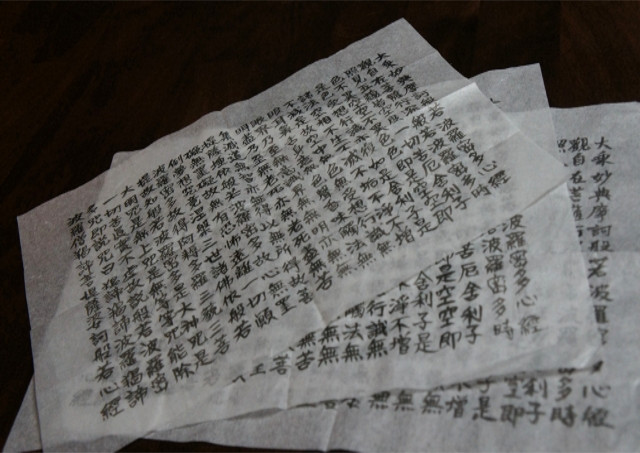 大乘妙典摩訶般若波羅蜜多心經
觀自在菩薩行深般若波羅蜜多時
照見五蘊皆空度一切苦厄舍利子
色不異空空不異色色即是空空即
是色受想行識亦復如是舍利子是
諸法空相不生不滅不垢不淨不增
不減是故空中無色無受想行識無
眼耳鼻舌身意無色聲香味觸法無
眼界乃至無意識界無無明亦無無
明盡乃至無老死亦無老死盡無苦
集滅道無智亦無得以無所得故菩
提薩埵依般若波羅蜜多故心無罣
礙無罣礙故無有恐怖遠離一切顛
倒夢想究竟涅槃三世諸佛依般若
波羅蜜多故得阿耨多羅三藐三菩
提故知般若波羅蜜多是大神咒是
大明咒是無上咒是無等等咒能除
一切苦真實不虛故說般若波羅蜜
多咒即說咒曰揭諦揭諦波羅揭諦
波羅僧揭諦菩提薩婆訶般若心經
波羅蜜多心經
若波羅蜜多時
苦厄舍利子
是空空即
舍利子是
淨不增
行識無
觸法無
無無
無苦
菩
大乘妙典摩訶般若波羅 心經
觀自在菩薩行 多時
利子
空即
子是
不增
無